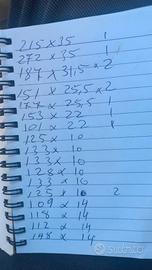 215 x 35 1
272 x 35 1
187 x 31,5 x 2
151 x 25,5 x 2
177 x 25,5 1
153 x 22 1
101 x 22 1
125 x 10
133 x 10
133 x 10
128 x 10
133 x 10
125 x 10 2
109 x 14
118 x 14
112 x 14
148 x 14
subito